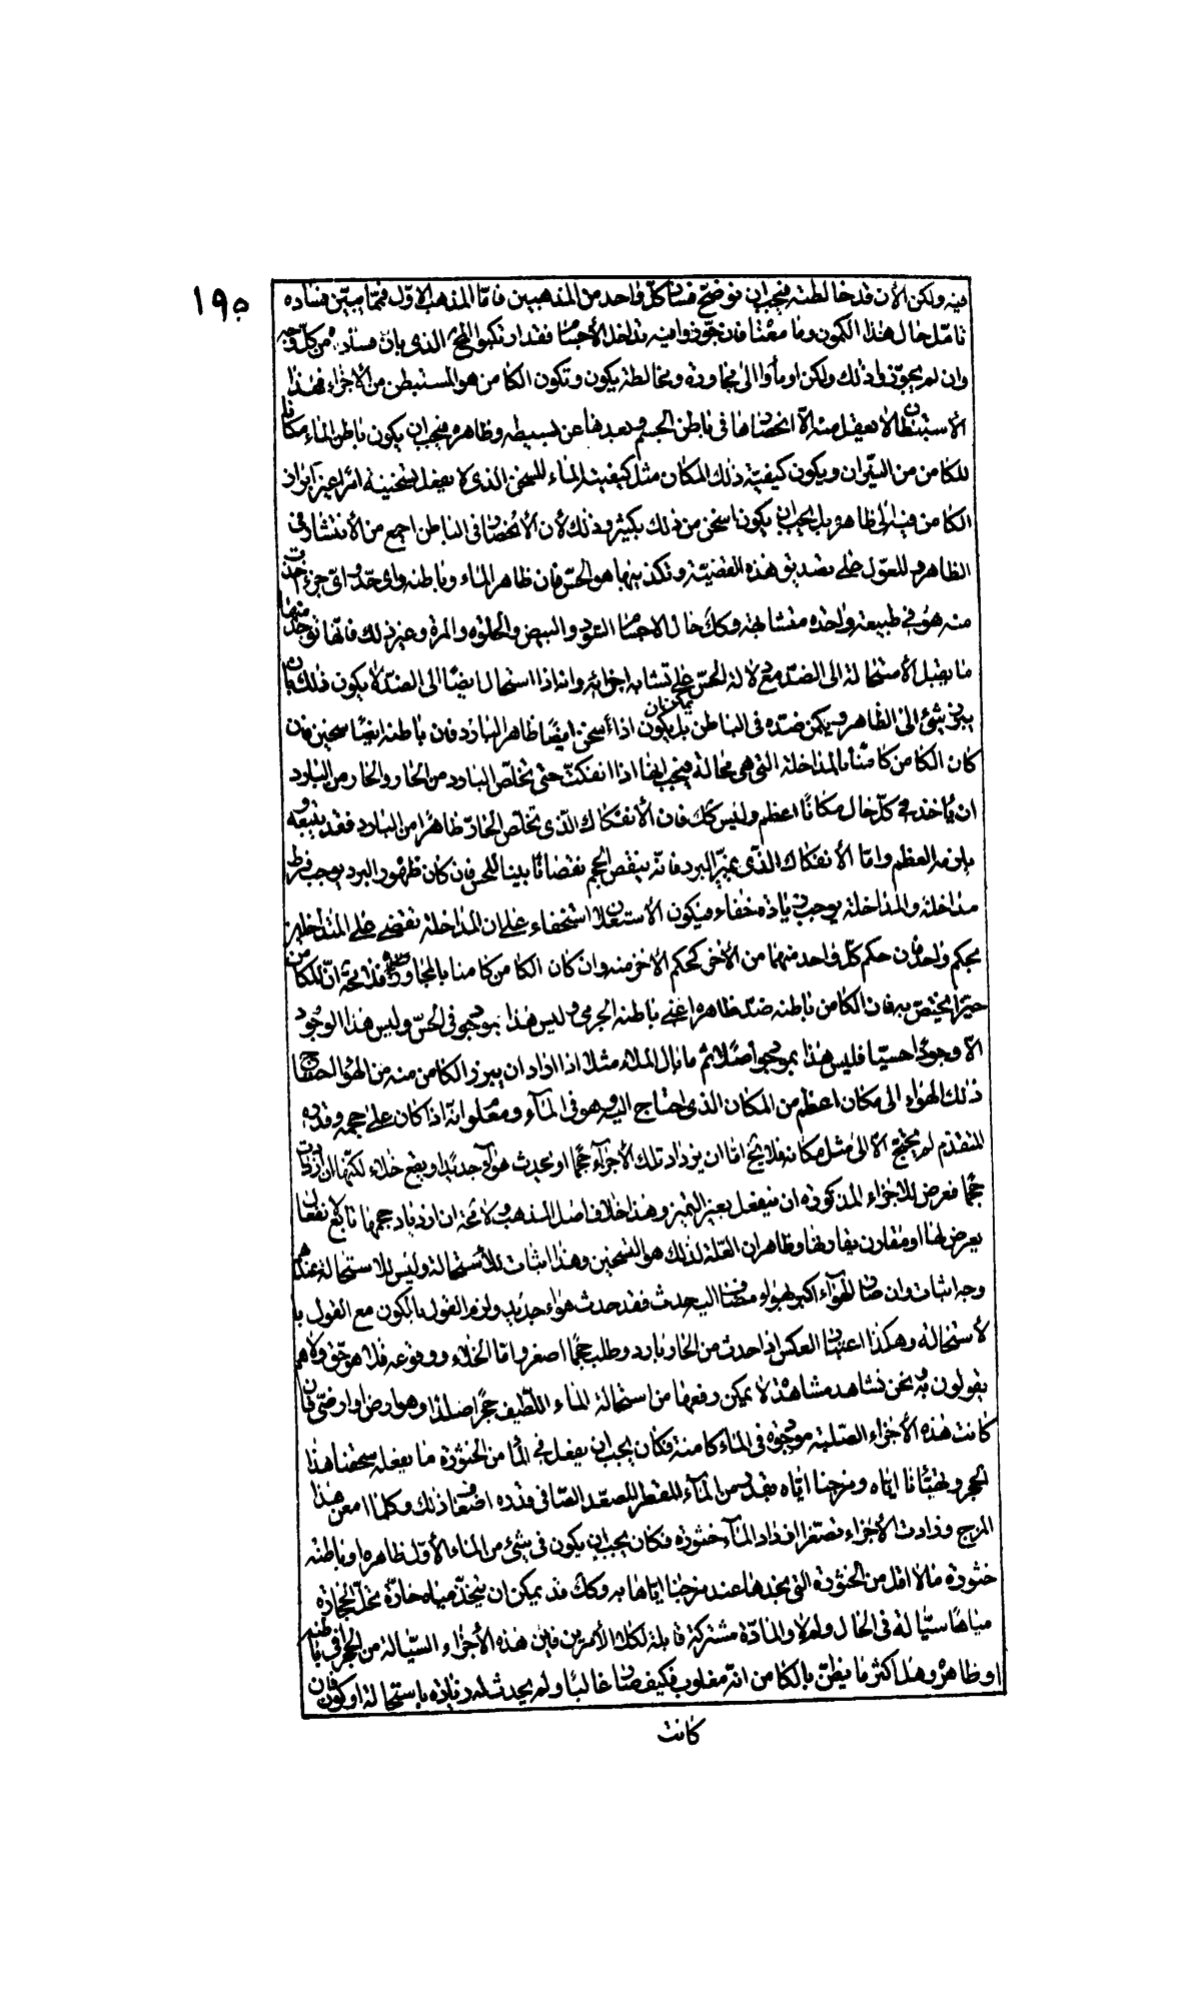 ١٩٥
فيه ولكن الأن قد خالطته فيجب ان نوضح فساد كل واحد من المذهبين فامّا المذهب الاوّل فممّا يبيّن فساده
تامّل حال هذا الكمون وما معناه فان جوّزوا فيه تداخل الأجسام فقد ارتكبوا المحال الذى بان فساده من كلّ وجه
وان لم يجوّزوا ذلك ولكن اومأوا الى مجاورة ومخالطة يكون وتكون الكامن هو المستبطن من الاجزاء فهذا
الأستبطان لا يعقل منه الّا انحصارها فى باطن الجسم وبعدها عن بسيطه وظاهره فيجب ان يكون باطن الماء مكانا
للكامن من النيّران ويكون كيفيّة ذلك المكان مثل كيفيّة الماء المسخن الذى لا يفعل تسخينه امرا غير ابراز
الكامن فيه الى ظاهره بل يجب ان يكون اسخن من ذلك بكثير وذلك لأن الأنحصار فى الباطن اجمع من الأنتشار فى
الظاهر والمعوّل على تصديق هذه القضيّة وتكذيبها هو الحسّ فان ظاهر الماء وباطنه واى حدّ واىّ جزء اخذت
منه هو فى طبيعة واحدة متشابهة وكك حال الاجسام السّود والبيض والحلوة والمرة وغير ذلك فانّها توجد منها
ما يقبل الأستحالة الى الضدّ مع دلالة الحسّ على تشابه اجزائه وانه اذا استحال ايضا الى الضدّ لا يكون ذلك بان
يبرز شئ الى الظاهر ويكمن ضدّه فى الباطن بل يمكن ان يكون اذا أسخن ايضا ظاهر البارد فان باطنه ايضا سخين فان
كان الكامن كامنا بالمداخلة التى هى محالة فيجب لها اذا انفكّت حتى تخلص البارد من الحار والحار من البارد
ان يأخذ فى كلّ حال مكانًا اعظم وليس كك فان الأنفكاك الذى تخلص الحارّ ظاهرا من البارد فقد يتبعه
يلزمه العظم وامّا الأنفكاك الذى يميّز البرد فانّه ينقص الحجم نقصانا بينا للحس فان كان ظهور البرد يوجب فرط
مداخلة والمداخلة يوجب زيادة خفاء فيكون الأستعلان استخفاء على ان المداخلة تقضى على المتداخلين
بحكم واحد فان حكم كلّ واحد منهما من الأخر كحكم الأخر منه وان كان الكامن كامنا بالمجاورة فلا محة انّ للكامن
حيّزا يختصّ به فان الكامن باطنه ضدّ ظاهره اعنى باطنه الجرمى وليس هذا بموجود فى الحسّ وليس هذا الوجود
الّا وجودًا حسيّا فليس هذا بموجود اصلا ثم ما بال الماء مثلا اذا اراد ان يبرز الكامن منه من الهواء احتاج
ذلك الهواء الى مكان اعظم من المكان الذى احتاج اليه وهو فى الماء ومعلوم انّه اذا كان على حجمه وقدره
المتقدّم لم يحتج الّا الى مثل مكانه فلا يخ امّا ان يزداد تلك الأجزاء حجما او يحدث هواء جديد او يقع خلاء لكنّها ان ازدادت
حجما فعرض للاجزاء المذكورة ان ينفعل بغير التميز وهذا خلاف اصل المذهب ولا محة ان ازدياد حجمها تابع لانفعال
يعرض لها او مقارن يقاربها وظاهر ان العلّة لذلك هو التسخين وهذا اثبات للأستحالة وليس للاستحالة عندهم
وجه اثبات وان صار الهواء اكبر بهواء مضاف اليه حدث فقد حدث هواء جديد ولزم القول بالكون مع القول با
لأستحالة وهكذا اعتبار العكس اذا حدث من الحار بارد وطلب حجما اصغر وامّا الخلاء ووقوعه فلا هو حق ولا هم
يقولون به ونحن نشاهد مشاهدة لا يمكن دفعها من استحالة الماء اللّطيف حجرًا صلدا وهو ارض او ارضىّ فان
كانت هذه الأجزاء الصّلبة موجودة فى الماء كامنة فكان يجب ان يفعل فى الماء من الخثورة ما يفعله سحقنا هذا
الحجر وتهيئتنا ايّاه ومزجنا ايّاه بقدر من الماء المقطر المصعّد الصّافى قدره اضعاف ذلك وكلما امعن هذا
المزج وزادت الأجزاء تصغّرا ازداد الماء خثورة فكان يجب ان يكون فى شئ من الماء الأوّل ظاهره او باطنه
خثورة ما لا اقل من الخثورة التى نجدها عند مزجنا ايّاها به وكك قد يمكن ان يتخذ مياه حادّة تحلّ الحجارة
مياها سيّالة فى الحال ولولا والمادّة مشتركة قابلة لكلا الأمرين فاين هذه الأجزاء السّيّالة من الحجر فى باطنه
او ظاهره وهذا اكثر ما يظنّ بالكامن انّه مغلوب فكيف صار غالبا ولم يحدث له زيادة باستحالة او كون فان
كانت